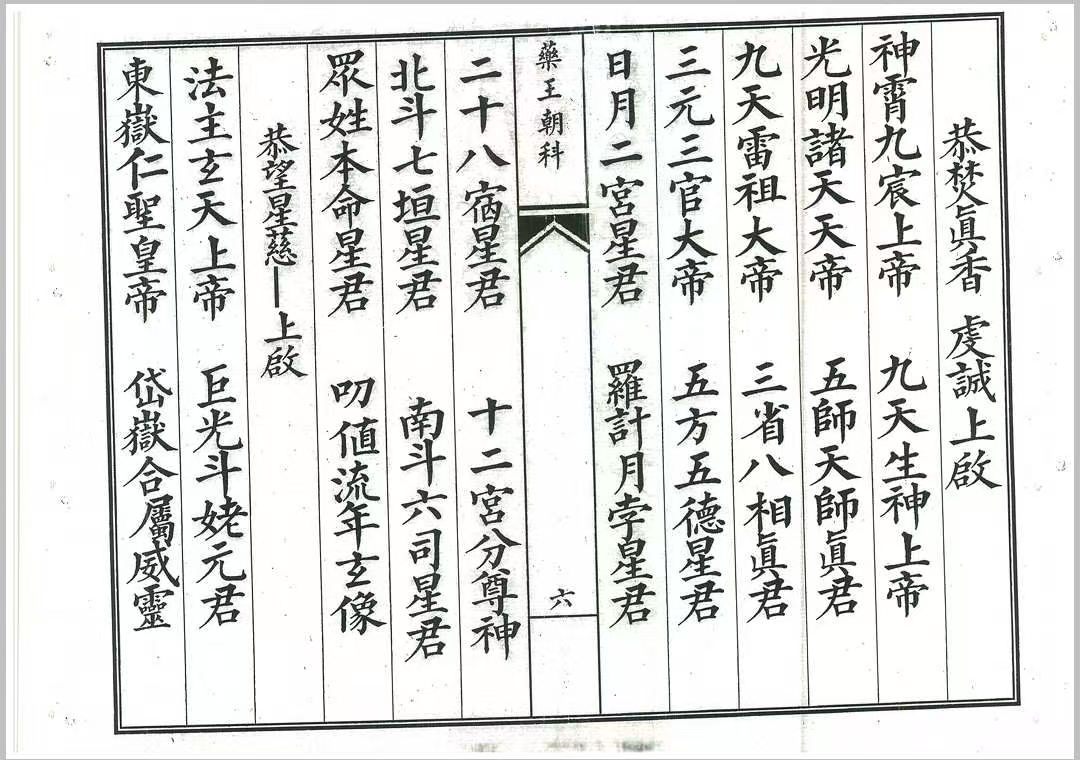 恭焚眞香 虔誠上啟
神霄九宸上帝 九天生神上帝
光明諸天天帝 五師天師眞君
九天雷祖大帝 三省八相眞君
三元三官大帝 五方五德星君
日月二宮星君 羅計月孛星君
藥王朝科 六
二十八宿星君 十二宮分尊神
北斗七垣星君 南斗六司星君
眾姓本命星君 叨値流年玄像
恭望星慈—上啟
法主玄天上帝 巨光斗姥元君
東嶽仁聖皇帝 岱嶽合屬威靈